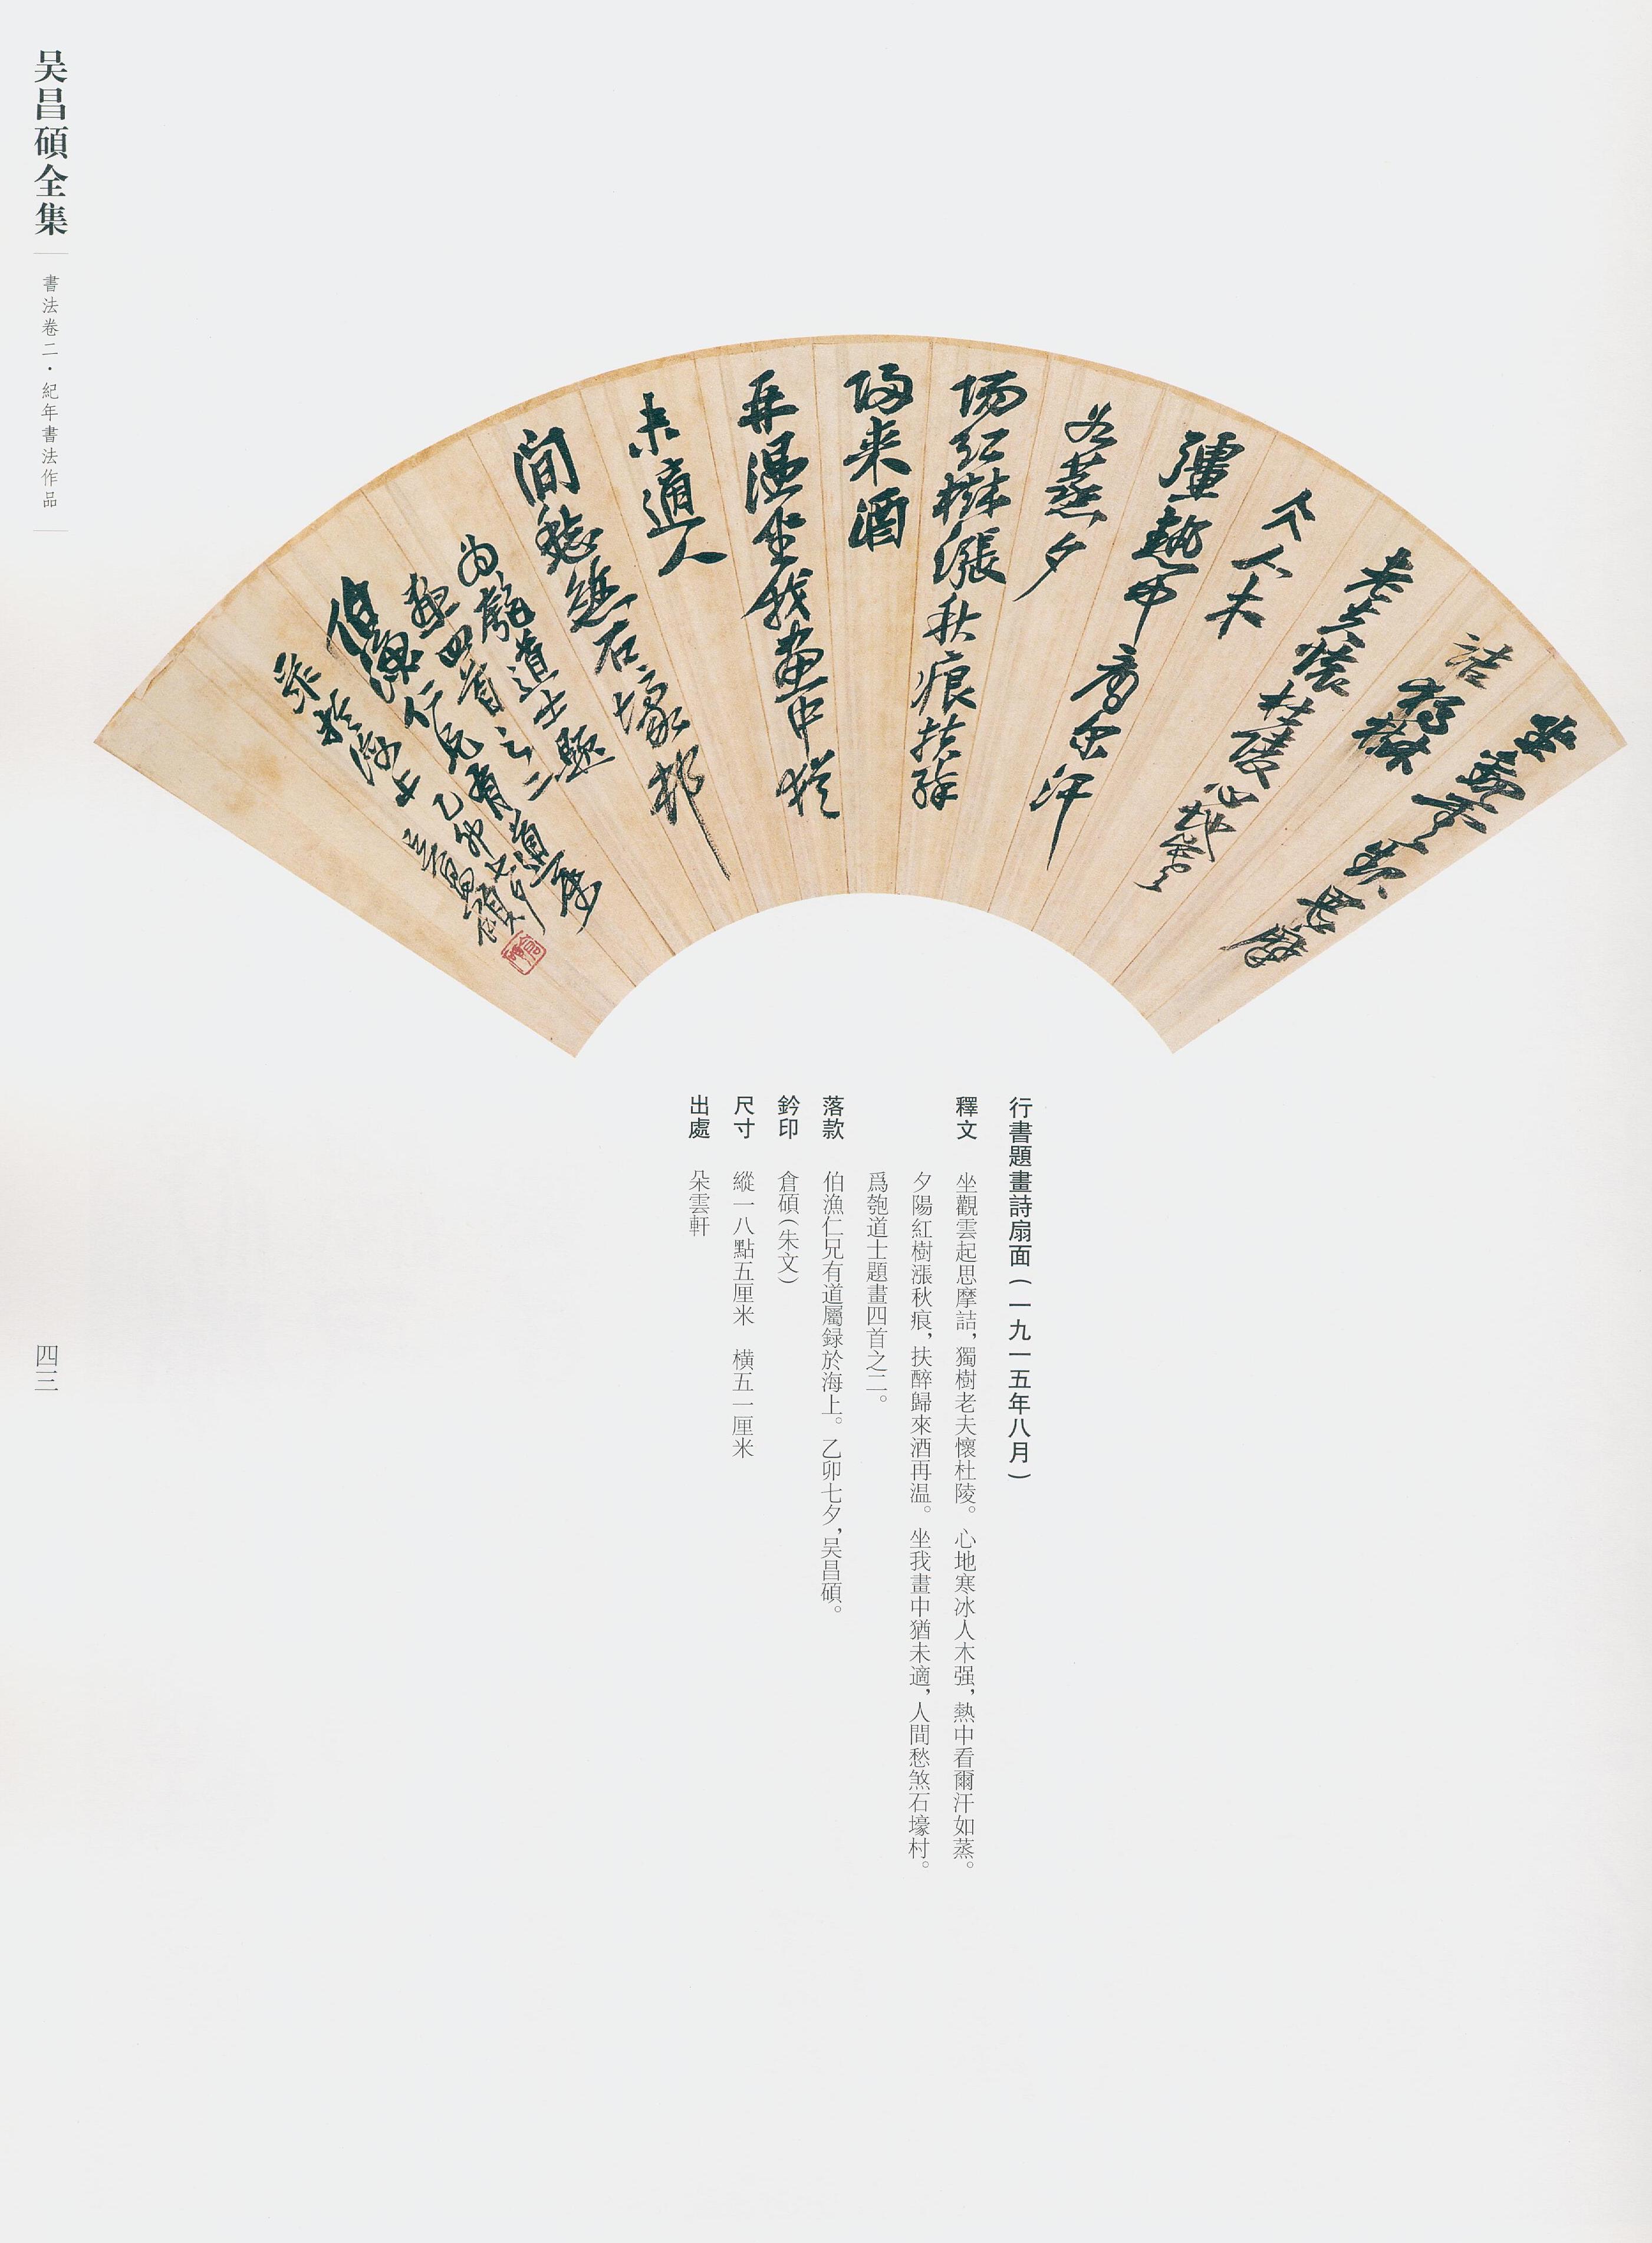 吴昌碩全集
書法卷二·紀年書法作品
四三
坐觀雲起思摩
詰獨樹
老夫懷杜陵心地寒
冰人木
彊熱中看爾汗
如蒸夕
陽紅樹漲秋痕扶醉
歸来酒
再温坐我畫中猶
未適人
間愁煞石壕邨
为匏道士題
畫四首之二
伯漁仁兄有道屬
录於海上乙卯七夕
吴昌碩
行書題畫詩扇面(一九一五年八月)
釋文 坐觀雲起思摩詰,獨樹老夫懷杜陵。心地寒冰人木强,熱中看爾汗如蒸。
夕陽紅樹漲秋痕,扶醉歸來酒再温。坐我畫中猶未適,人間愁煞石壕村。
爲匏道士題畫四首之二。
落款 伯漁仁兄有道屬録於海上。乙卯七夕,吴昌碩。
鈐印 倉碩(朱文)
尺寸 縱一八點五厘米 橫五一厘米
出處 朵雲軒